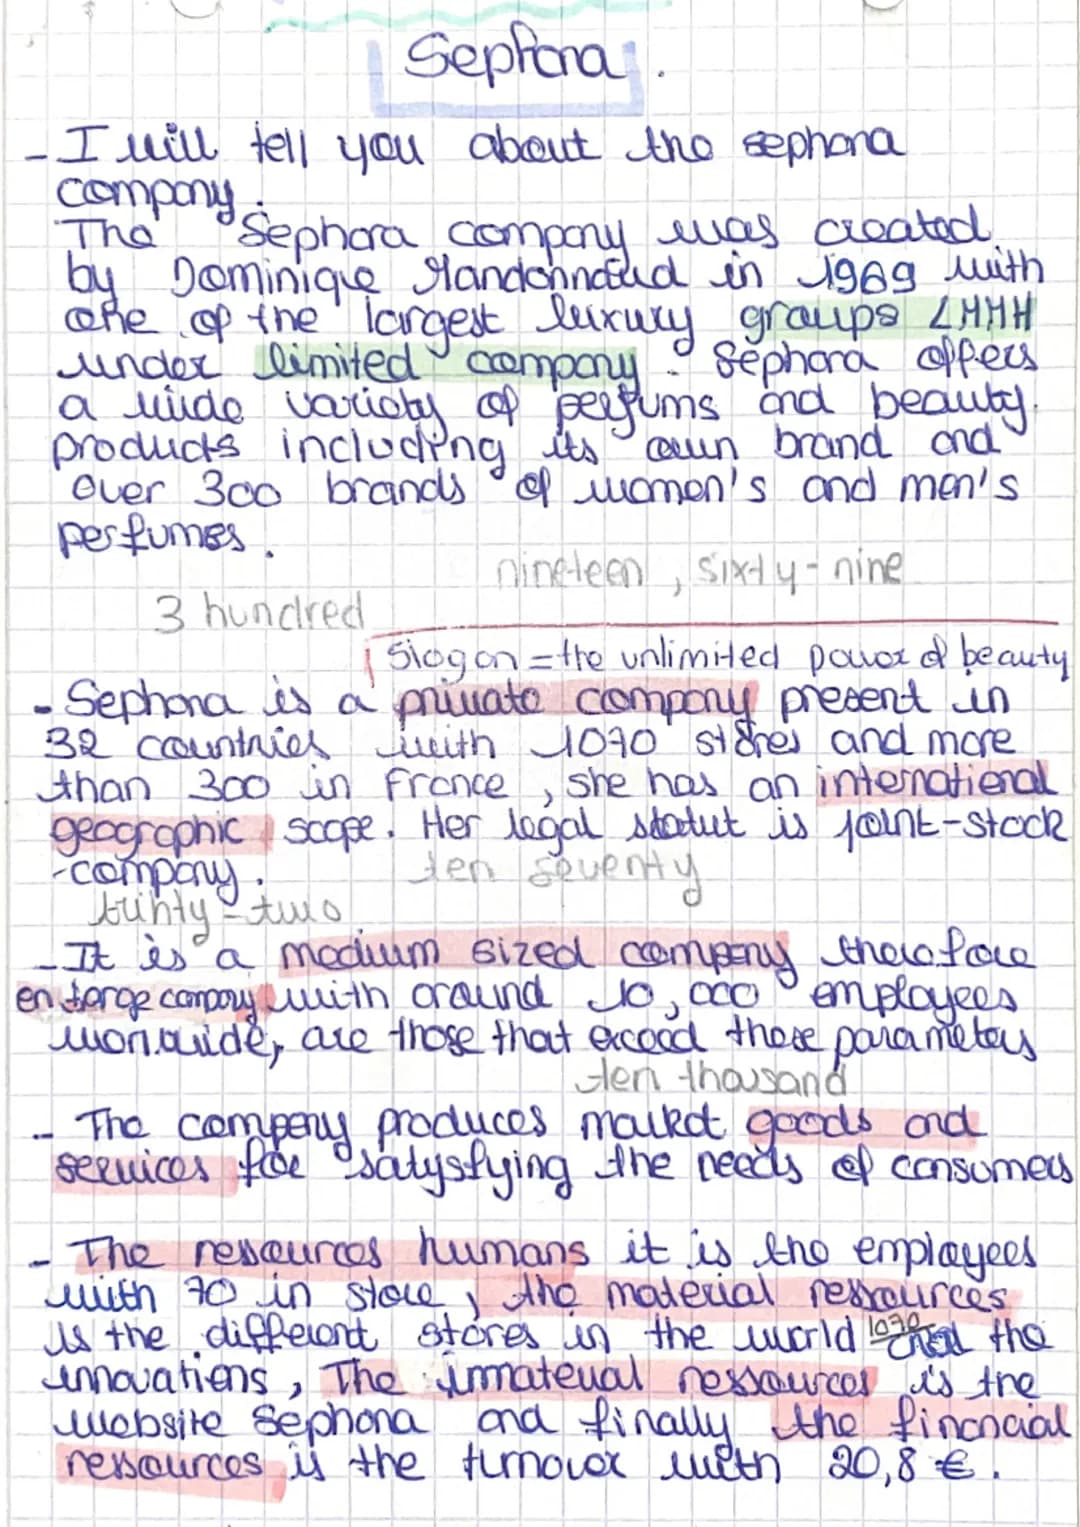 Sephora.
- I will tell you about the sephora
company.
The Sephora company was created
by Dominique Mandonnaud in 1969 with
one of the largest luxury groups LMMH
under limited company. Sephora offers
a wide variety of perfums and beauty
products including its own brand and
over 300 brands of women's and men's
perfumes.
nineteen, sixty-nine
3 hundred
Slogan = the unlimited power of beauty
- Sephora is a private company present in
32 countries with 1070 stores and more
than 300 in France, she has an international
geographic scope. Her legal statut is joint-stock
-company.
ten seventy
thirty-two
- It is a medium sized company therefore
en large company with around 10,000 employees
worlwide, are those that exceed these parameters
ten thousand
- The company produces market goods and
services for satysfying the needs of consumers
- The ressources humans it is the employees
with 70 in store, the material ressources
is the different stores in the world 1070 and the
innovations, The immaterial ressources is the
website Sephora and finally the financial
ressources is the turnover with 20,8 €.